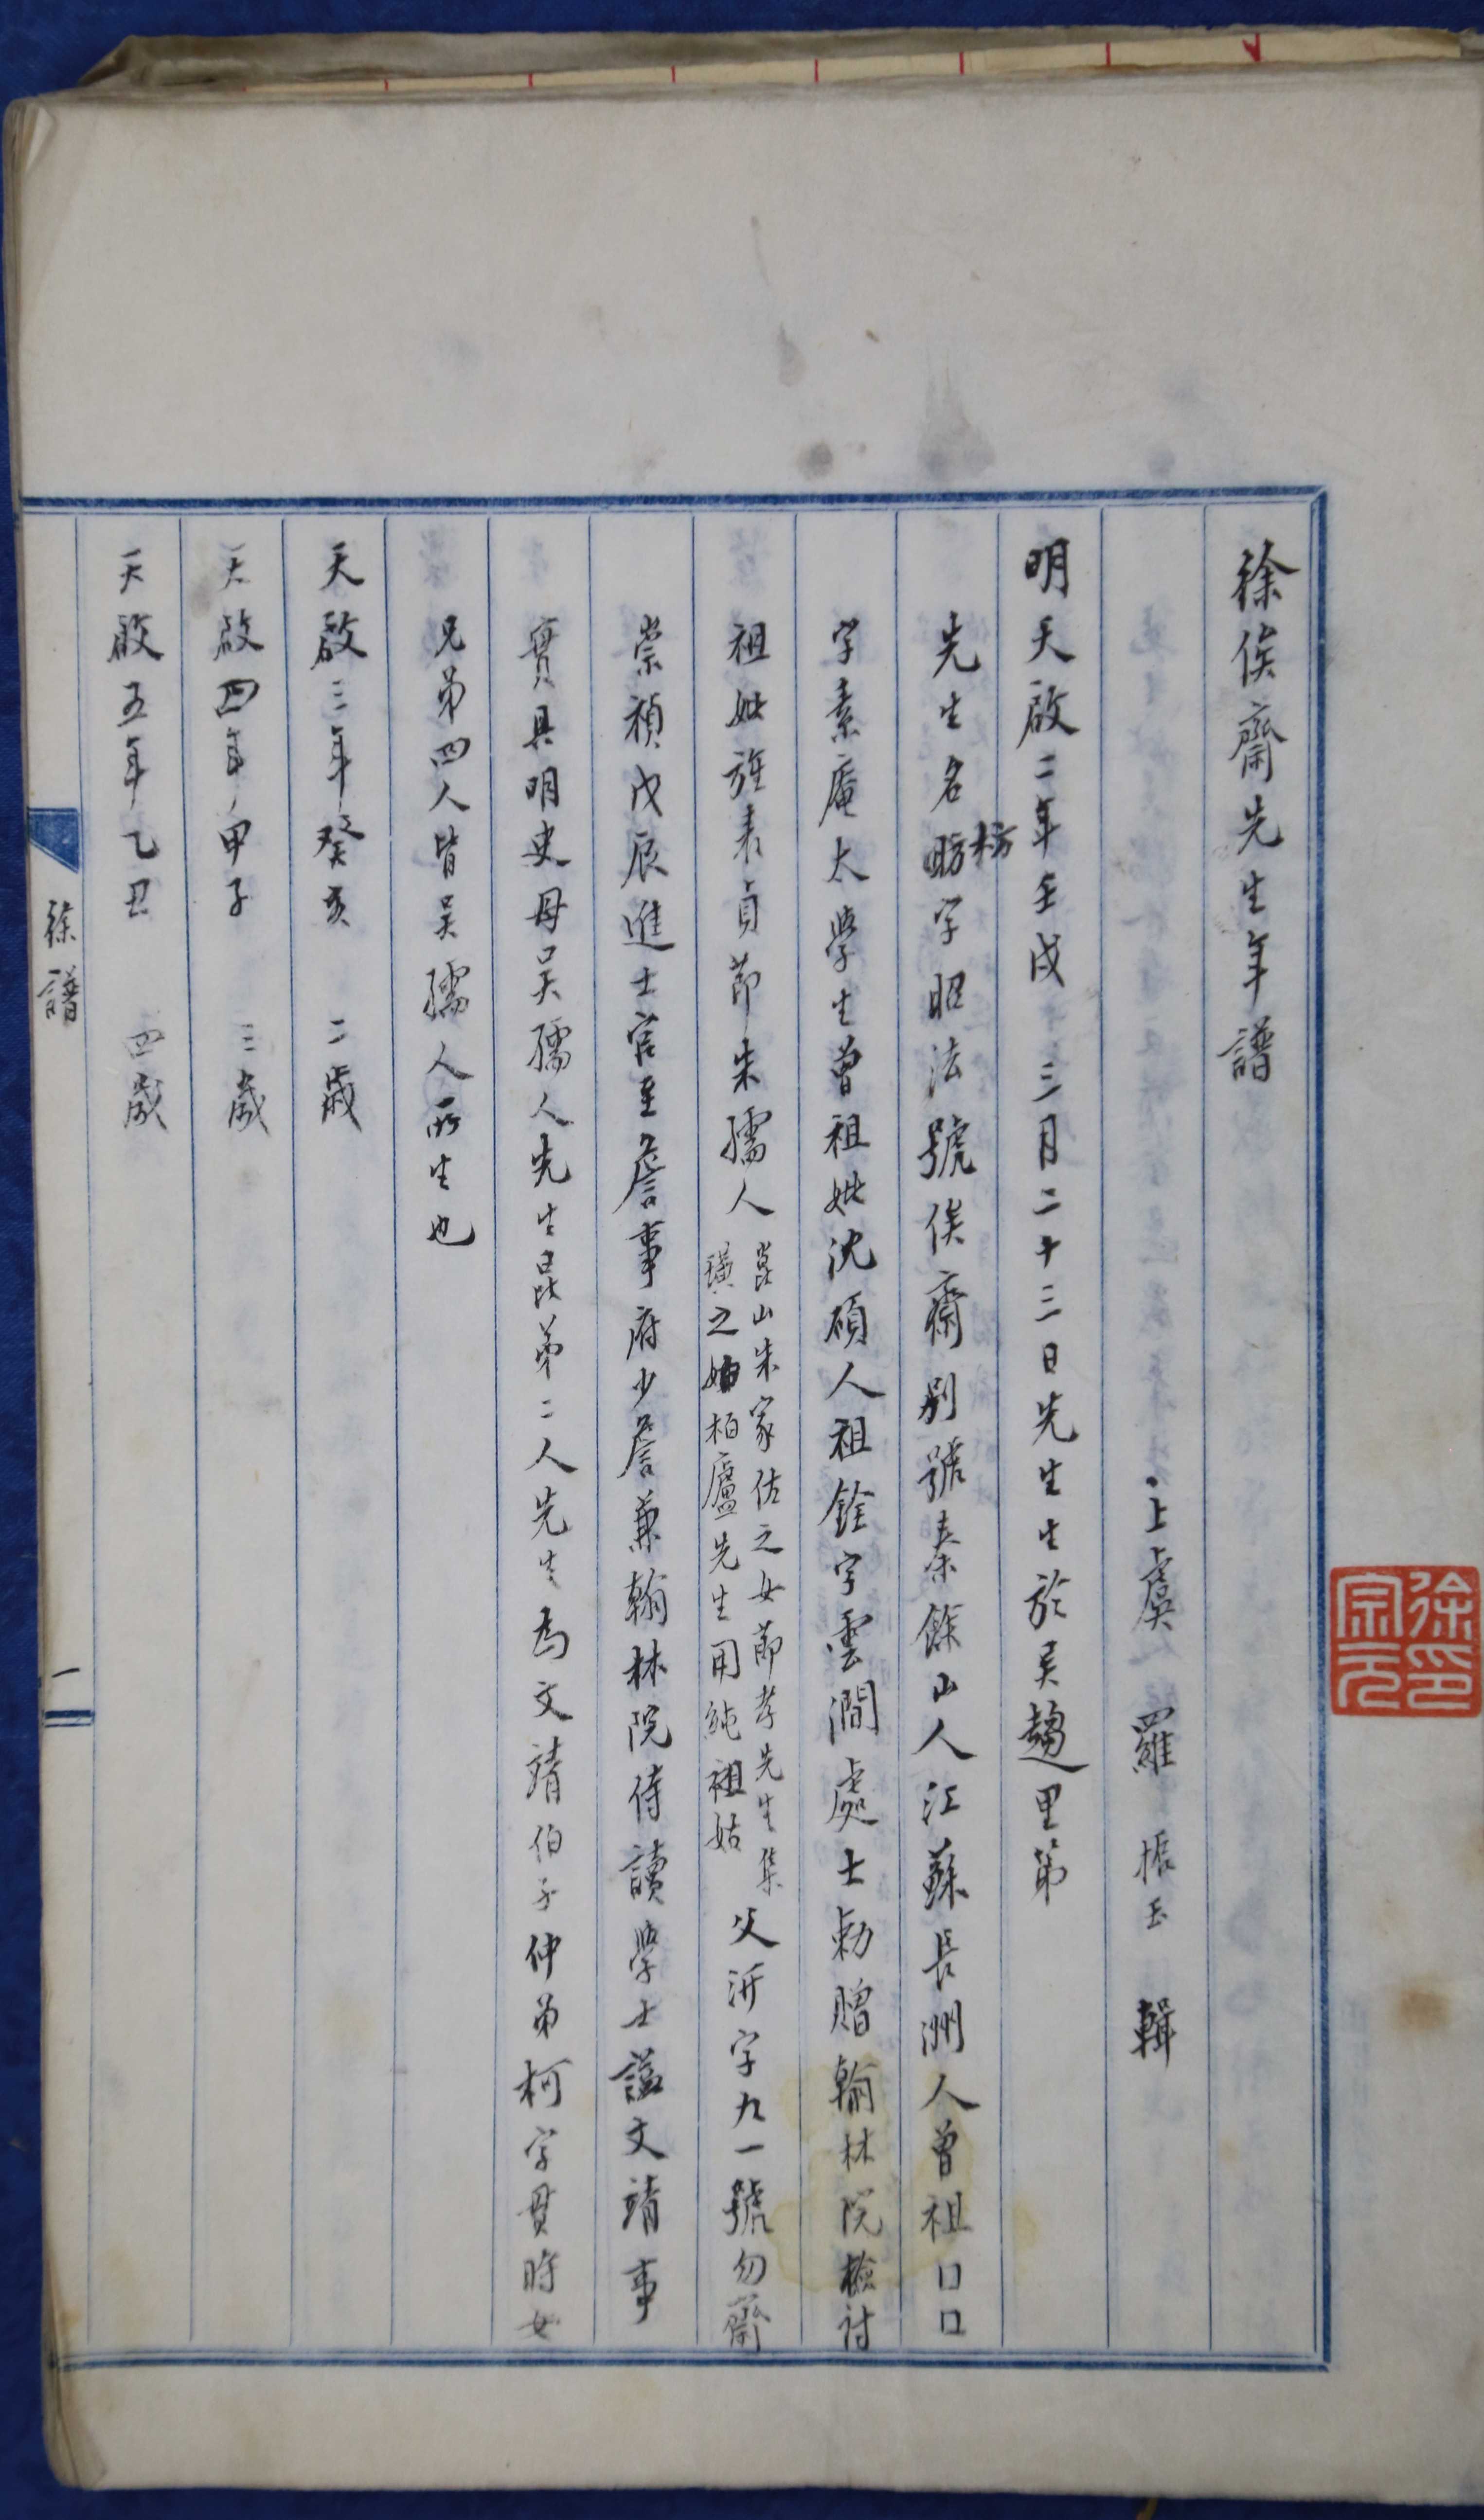 徐俟齋先生年譜
上虞羅振玉輯
明天啟二年壬戌三月二十三日先生生於吳趨里第
先生名昉枋字昭法號俟齋别號秦餘山人江蘇長洲人曾祖口口
字素庵太學生曾祖妣沈碩人祖銓字雲澗處士勅贈翰林院檢討
祖妣旌表貞節朱孺人
崑山朱家佐之女節孝先生集
璜之姑柏廬先生用純祖姑
父汧字九一號勿齋
崇禎戊辰進士官至詹事府少詹兼翰林院侍讀學士謚文靖事
實具明史母吳孺人先生昆弟二人先生為文靖伯子仲弟柯字貫時女
兄弟四人皆吳孺人所生也
天啟三年癸亥 二歲
天啟四年甲子 三歲
天啟五年乙丑 四歲
徐譜
一
徐印
宗元